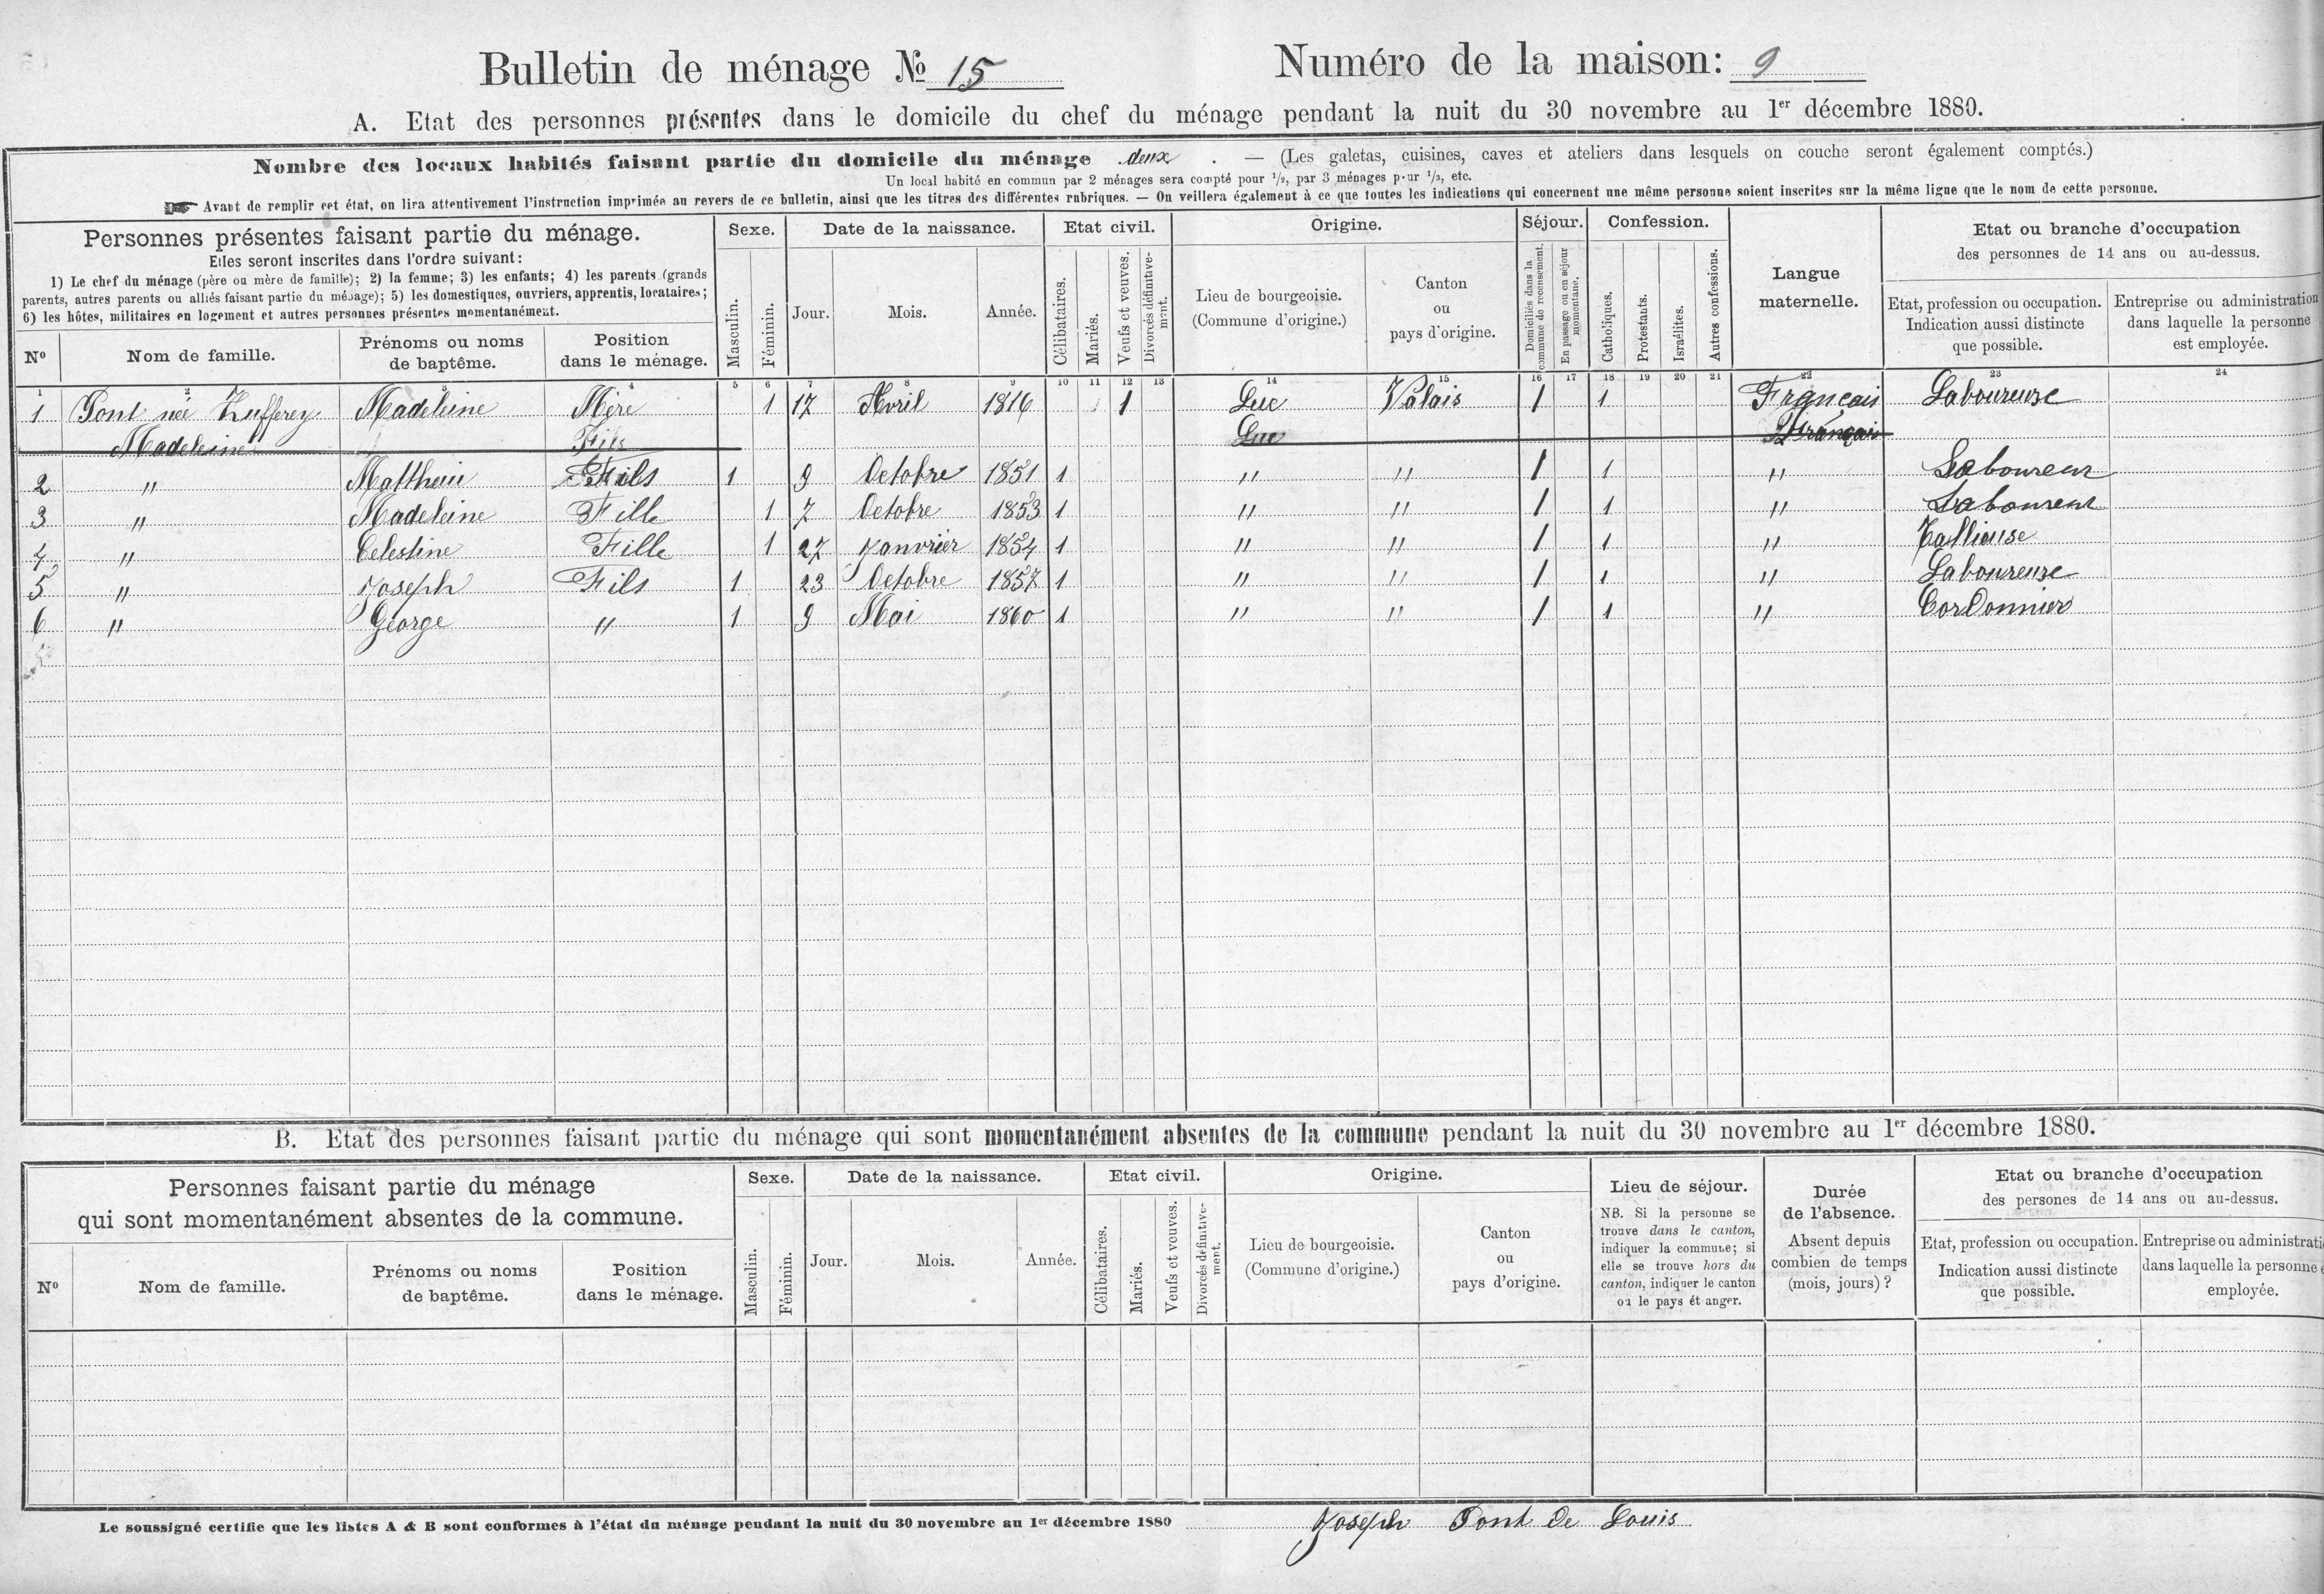 Bulletin de ménage № 15 Numéro de la maison: 9
A. Etat des personnes présentes dans le domicile du chef du ménage pendant la nuit du 30 novembre au 1er décembre 1880.
Nombre des locaux habités faisant partie du domicile du ménage deux. — (Les galetas, cuisines, caves et ateliers dans lesquels on couche seront également comptés.)
Un local habité en commun par 2 ménages sera compté pour 1/2, par 3 ménages pour 1/3, etc.
☞ Avant de remplir cet état, on lira attentivement l'instruction imprimée au revers de ce bulletin, ainsi que les titres des différentes rubriques. — On veillera également à ce que toutes les indications qui concernent une même personne soient inscrites sur la même ligne que le nom de cette personne.
Personnes présentes faisant partie du ménage.
Elles seront inscrites dans l'ordre suivant:
1) Le chef du ménage (père ou mère de famille); 2) la femme; 3) les enfants; 4) les parents (grands
parents, autres parents ou alliés faisant partie du ménage); 5) les domestiques, ouvriers, apprentis, locataires;
6) les hôtes, militaires en logement et autres personnes présentes momentanément.
Nº
Nom de famille.
Prénoms ou noms
de baptême.
Position
dans le ménage.
Sexe.
Masculin.
Féminin.
Date de la naissance.
Jour.
Mois.
Année.
Etat civil.
Célibataires.
Mariés.
Veufs et veuves.
Divorcés définitive-
ment.
Origine.
Lieu de bourgeoisie.
(Commune d'origine.)
Canton
ou
pays d'origine.
Séjour.
Domiciliés dans la
commune de recensement.
En passage ou en séjour
momentané.
Confession.
Catholiques.
Protestants.
Israélites.
Autres confessions.
Langue
maternelle.
Etat ou branche d'occupation
des personnes de 14 ans ou au-dessus.
Etat, profession ou occupation.
Indication aussi distincte
que possible.
Entreprise ou administration
dans laquelle la personne
est employée.
1 2 3 4 5 6 7 8 9 10 11 12 13 14 15 16 17 18 19 20 21 22 23 24
1 Pont née Zufferey Madeleine Mère 1 17 Avril 1816 1 Luc Valais 1 1 Français Laboureuse
Madeleine Fils Luc Français
2 " Matthieu Fils 1 9 Octobre 1851 1 " " 1 1 " Laboureur
3 " Madeleine Fille 1 7 Octobre 1853 1 " " 1 1 " Laboureur
4 " Celestine Fille 1 27 Janvrier 1854 1 " " 1 1 " Tallieuse
5 " Joseph Fils 1 23 Octobre 1857 1 " " 1 1 " Laboureuse
6 " George " 1 9 Mai 1860 1 " " 1 1 " Cordonnier
B. Etat des personnes faisant partie du ménage qui sont momentanément absentes de la commune pendant la nuit du 30 novembre au 1er décembre 1880.
Personnes faisant partie du ménage
qui sont momentanément absentes de la commune.
Nº
Nom de famille.
Prénoms ou noms
de baptême.
Position
dans le ménage.
Sexe.
Masculin.
Féminin.
Date de la naissance.
Jour.
Mois.
Année.
Etat civil.
Célibataires.
Mariés.
Veufs et veuves.
Divorcés définitive-
ment.
Origine.
Lieu de bourgeoisie.
(Commune d'origine.)
Canton
ou
pays d'origine.
Lieu de séjour.
NB. Si la personne se
trouve dans le canton,
indiquer la commune; si
elle se trouve hors du
canton, indiquer le canton
ou le pays étranger.
Durée
de l'absence.
Absent depuis
combien de temps
(mois, jours)?
Etat ou branche d'occupation
des persones de 14 ans ou au-dessus.
Etat, profession ou occupation.
Indication aussi distincte
que possible.
Entreprise ou administrati
dans laquelle la personne e
employée.
Le soussigné certifie que les listes A & B sont conformes à l'état du ménage pendant la nuit du 30 novembre au 1er décembre 1880 Joseph Pont de Louis